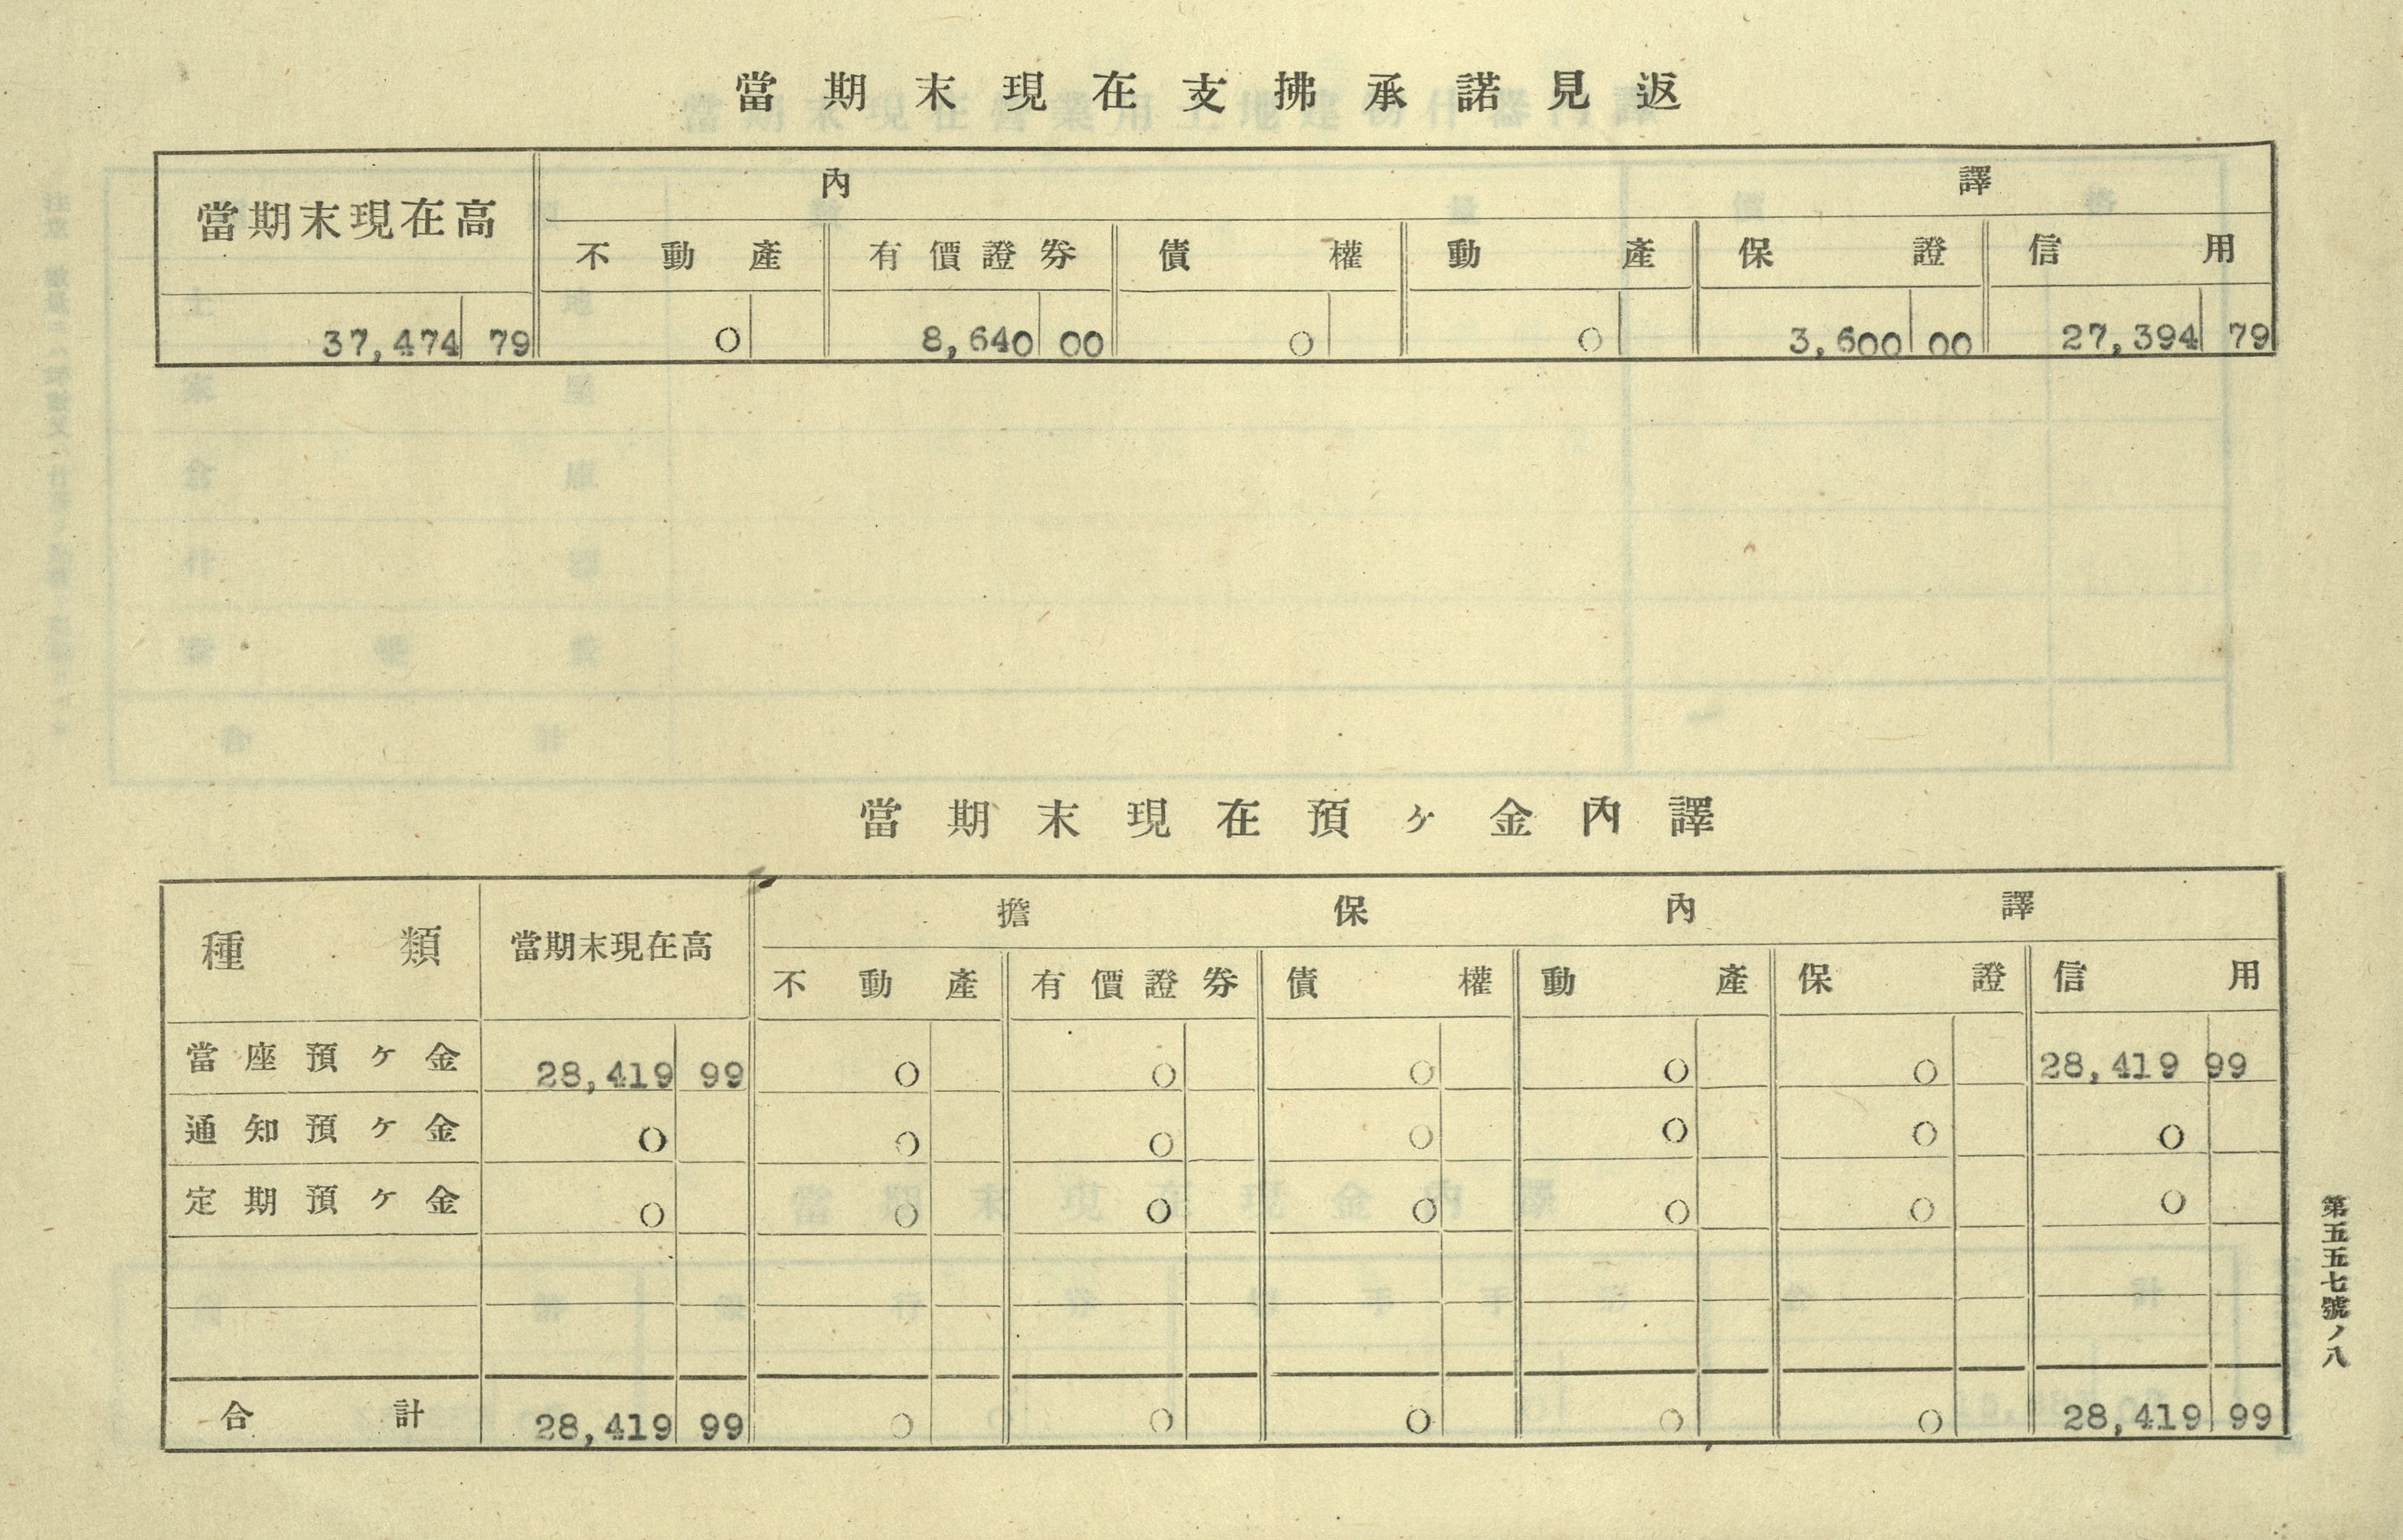 當期末現在支拂承諾見返
當期末現在高 內譯
不動產 有價證券 債權 動產 保證 信用
37,474 79 0 8,640 00 0 0 3,600 00 27,394 79
當期末現在預ヶ金內譯
種類 當期末現在高 擔保內譯
不動產 有價證券 債權 動產 保證 信用
當座預ヶ金 28,419 99 0 0 0 0 0 28,419 99
通知預ヶ金 0 0 0 0 0 0 0
定期預ヶ金 0 0 0 0 0 0 0
合計 28,419 99 0 0 0 0 0 28,419 99
第五五七號ノ八